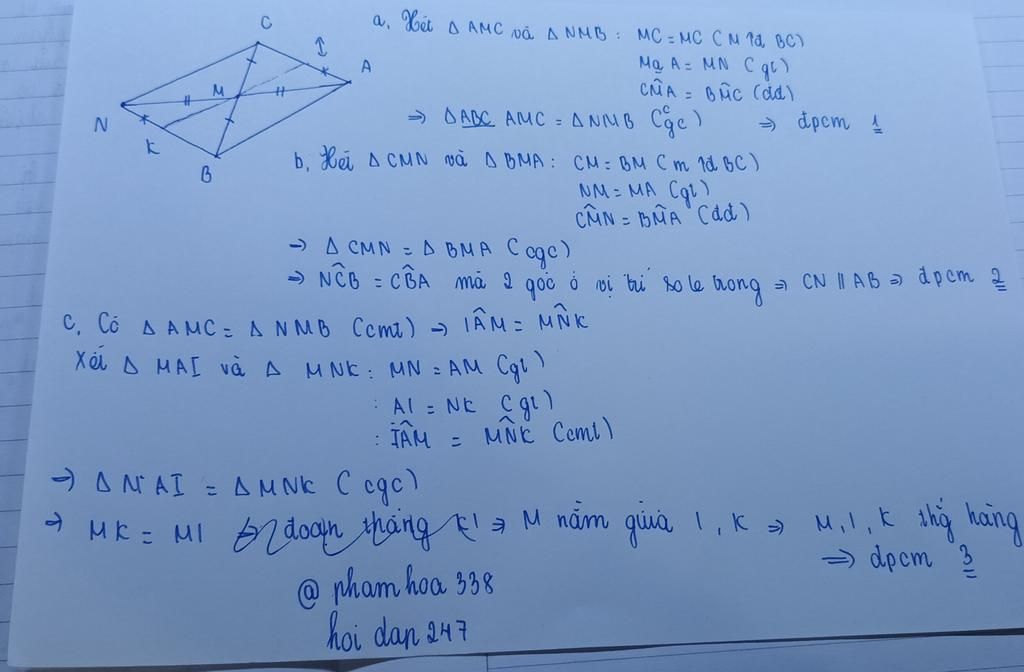 C
I
A
M
N
K
B
a, Xét Δ AMC và Δ NMB : MC = MC ( M tđ BC)
MA = MN ( gt )
CM̂A = BM̂C (đđ)
⇒ Δ ABC AMC = Δ NMB ( cgc ) ⇒ đpcm 1
b, Xét Δ CMN và Δ BMA : CM = BM ( m tđ BC)
NM = MA ( gt )
CM̂N = BM̂A (đđ)
→ Δ CMN = Δ BMA ( cgc )
⇒ NĈB = CB̂A mà 2 góc ở vị trí so le trong ⇒ CN // AB ⇒ đpcm 2
c, Có Δ AMC = Δ NMB (cmt) → IÂM = MN̂K
Xét Δ MAI và Δ MNK : MN = AM (gt)
: AI = NK ( gt )
: IÂM = MN̂K (cmt)
→ Δ MAI = Δ MNK ( cgc )
→ MK = MI đoạn thẳng KI ⇒ M nằm giữa I , K ⇒ M, I, K thẳ hàng
⇒ đpcm 3
@ phamhoa 338
hoi dap 247